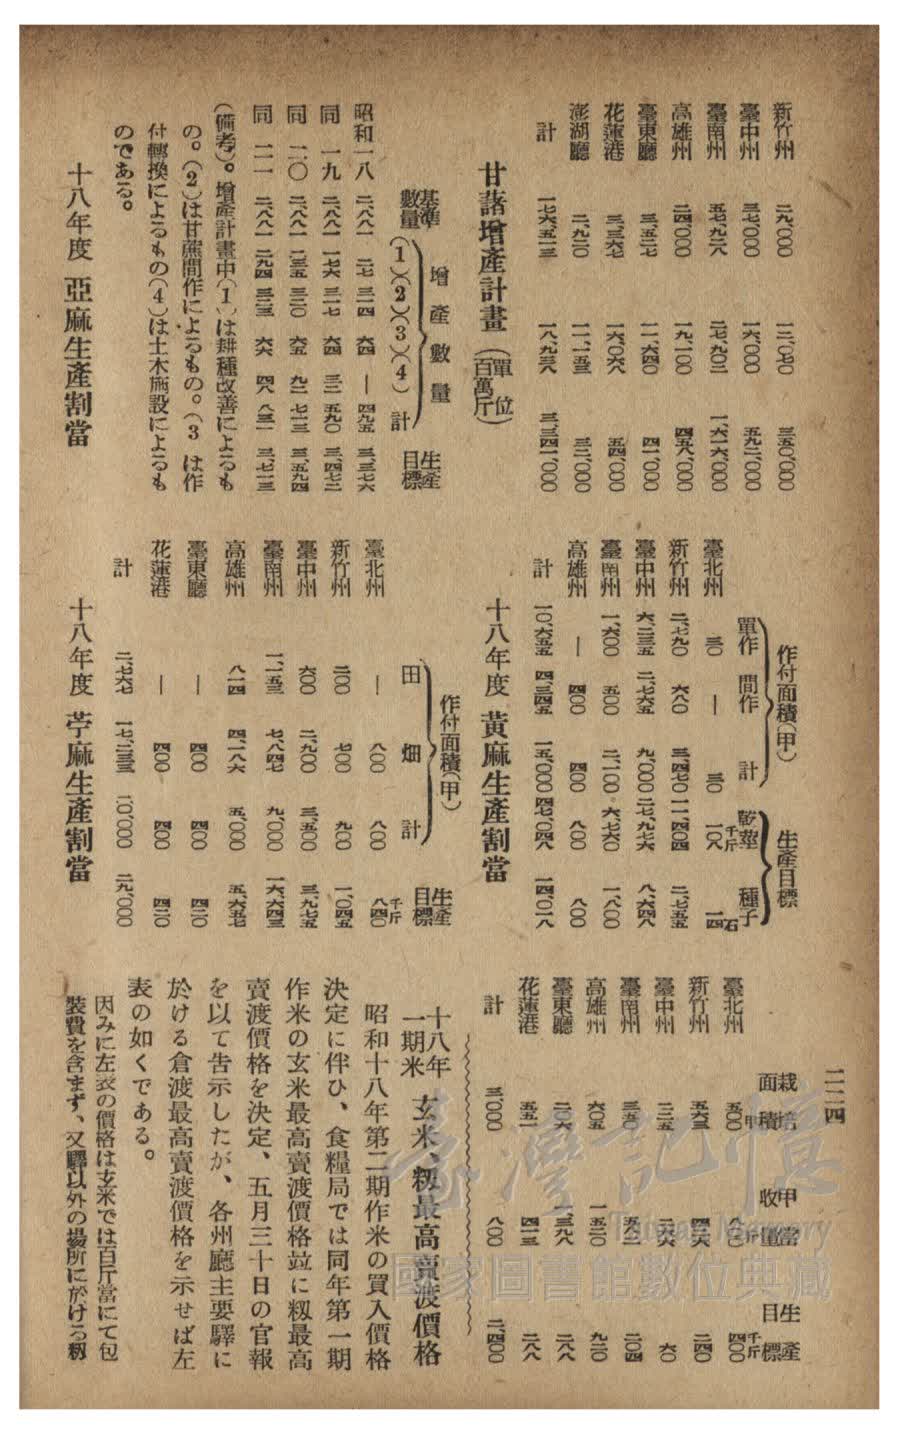 二二四
新竹州 二九、〇〇〇 一二、〇七〇 三五〇、〇〇〇
臺中州 三七、〇〇〇 一六、〇〇〇 五九二、〇〇〇
臺南州 五七、九二八 二七、九〇二 一、六一六、〇〇〇
高雄州 二四、〇〇〇 一九、一〇〇 四五八、〇〇〇
臺東廳 三、五二七 一一、六四〇 四一、〇〇〇
花蓮港 三、三六七 一六、〇六八 五四、〇〇〇
澎湖廳 二、九二〇 一一、一五三 三二、〇〇〇
計 一七六、五一三 一八、九三八 三、三四一、〇〇〇
甘藷增產計畫(單位百萬斤)
增產數量
基準數量 (1)(2)(3)(4) 計 生產目標
昭和一八 二、八八一 二七 三二四 六四 — 四九五 三、三七六
同 一九 二、八八一 一七六 三一七 六四 三三 五九〇 三、四七二
同 二〇 二、八八一 二三五 三二〇 六五 九二 七一三 三、五九四
同 二一 二、八八一 二九四 三二三 六六 四八 八三一 三、七一三
(備考)。增產計畫中(1)は耕種改善によるも
の。(2)は甘蔗間作によるもの。(3は作
付轉換によるもの(4)は土木施設によるも
のである。
十八年度 亞麻生產割當
作付面積(甲) 生產目標
單作 間作 計 乾莖 種子
臺北州 三〇 — 三〇 一〇八千斤 一四石
新竹州 二、七九〇 六八〇 三、四七〇 一一、四〇四 二、七五五
臺中州 六、二三五 二、七六五 九、〇〇〇 二七、九七六 八、六四八
臺南州 一、六〇〇 五〇〇 二、一〇〇 六、七六〇 一、八〇〇
高雄州 — 四〇〇 四〇〇 八〇〇 八〇〇
計 一〇、六五五 四、三四五 一五、〇〇〇 四七、〇四八 一四、〇一八
十八年度 黃麻生產割當
作付面積(甲)
田 畑 計 生產目標
臺北州 — 八〇〇 八〇〇 八四〇千斤
新竹州 二〇〇 七〇〇 九〇〇 一、〇四五
臺中州 六〇〇 二、九〇〇 三、五〇〇 三、九七五
臺南州 一、一五三 七、八四七 九、〇〇〇 一六、六四三
高雄州 八一四 四、一八六 五、〇〇〇 五、六五七
臺東廳 — 四〇〇 四〇〇 四二〇
花蓮港 — 四〇〇 四〇〇 四二〇
計 二、七六七 一七、二三三 二〇、〇〇〇 二九、〇〇〇
十八年度 苧麻生產割當
栽培面積 甲當收量 生產目標
臺北州 五〇〇甲 八〇〇斤 四〇〇千斤
新竹州 五六三 四二六 二四〇
臺中州 二二五 二六六 六〇
臺南州 三五〇 五八二 二〇四
高雄州 六〇五 一、五二〇 九二〇
臺東廳 二〇六 一、三九八 二八八
花蓮港 五五一 四二三 二八八
計 三、〇〇〇 八〇〇 二、四〇〇
十八年一期米 玄米、籾最高賣渡價格
昭和十八年第二期作米の買入價格
決定に伴ひ、食糧局では同年第一期
作米の玄米最高賣渡價格竝に籾最高
賣渡價格を決定、五月三十日の官報
を以て告示したが、各州廳主要驛に
於ける倉渡最高賣渡價格を示せば左
表の如くである。
因みに左表の價格は玄米では百斤當にて包
裝費を含まず、又驛以外の場所に於ける籾
臺灣記憶
Taiwan Memory
國家圖書館數位典藏